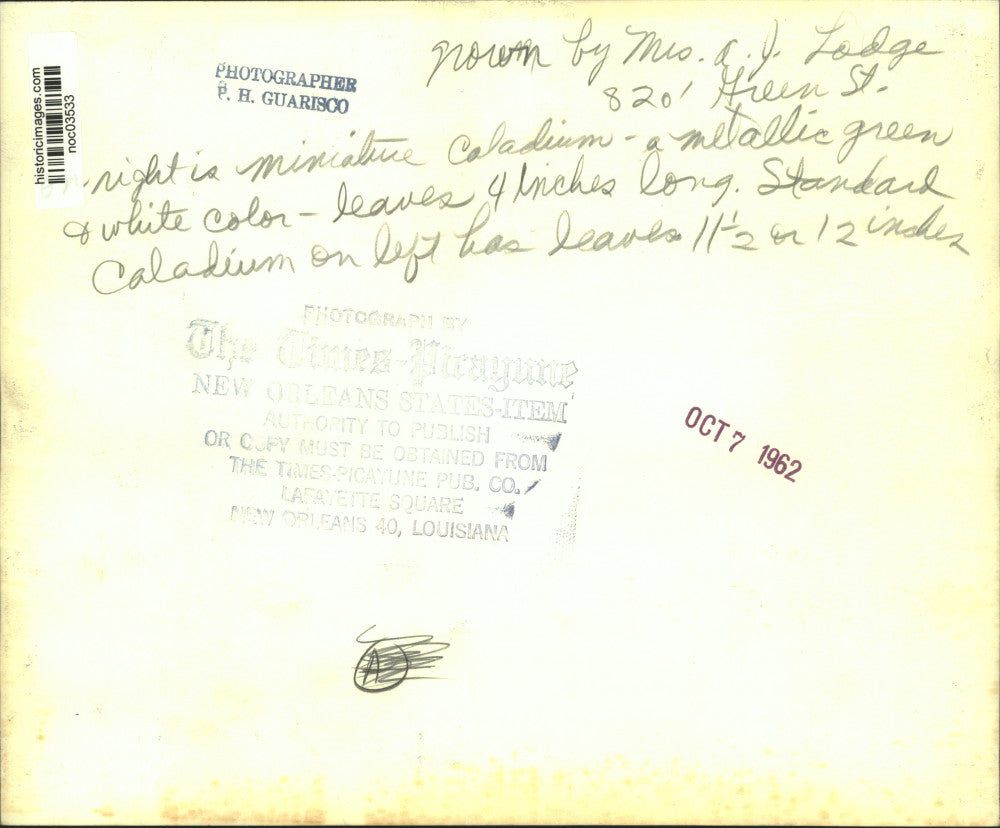 historicimages.com
noc03533
PHOTOGRAPHER
P. H. GUARISCO
grown by Mrs. A. J. Lodge
820 Green St.
on right is miniature Caladium - a metallic green
& white color - leaves 4 inches long. Standard
Caladium on left has leaves 11 1/2 or 12 inches
PHOTOGRAPH BY
The Times-Picayune
NEW ORLEANS STATES-ITEM
AUTHORITY TO PUBLISH
OR COPY MUST BE OBTAINED FROM
THE TIMES-PICAYUNE PUB. CO.
LAFAYETTE SQUARE
NEW ORLEANS 40, LOUISIANA
OCT 7 1962
A